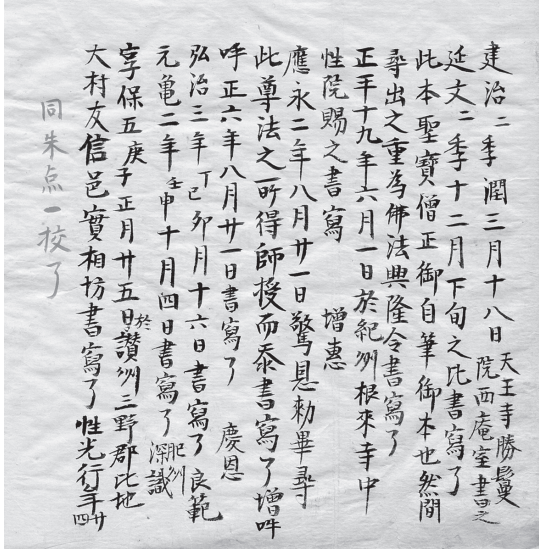 建治二季潤三月十八日 天王寺勝鬘
院西庵室書之
延文二季十二月下旬之比書寫了
此本聖寳僧正御自筆御本也然間
尋出之重為佛法興隆令書寫了
正平十九年六月一日於紀州根來寺中
性院賜之書寫 増惠
應永二年八月廿一日驚恩勅畢尋
此尊法之一所得師授而忝書寫了増吽
吽正六年八月廿一日書寫了 慶恩
弘治三年丁巳卯月十六日書寫了 良範
元亀二年壬申十月四日書寫了 肥州
深識
享保五庚子正月廿五日於讃州三野郡比地
大村友信邑寳相坊書寫了性光行年廿四
同朱点一校了